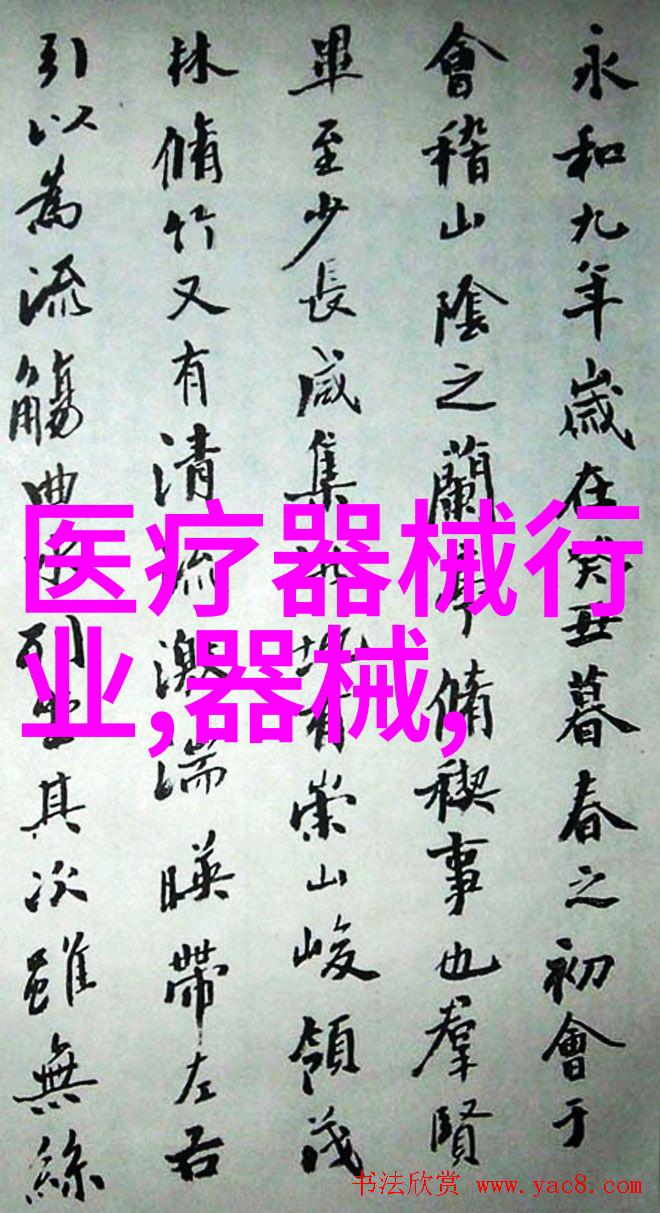 永和九年歲在癸丑暮春之初會于
會稽山陰之蘭亭脩禊事也羣賢
畢至少長咸集此地有崇山峻領茂
林脩竹又有清流激湍暎帶左右
引以為流觴曲水列坐其次雖無絲
医疗器械行
业,器械,
书法欣赏 www.yac8.com